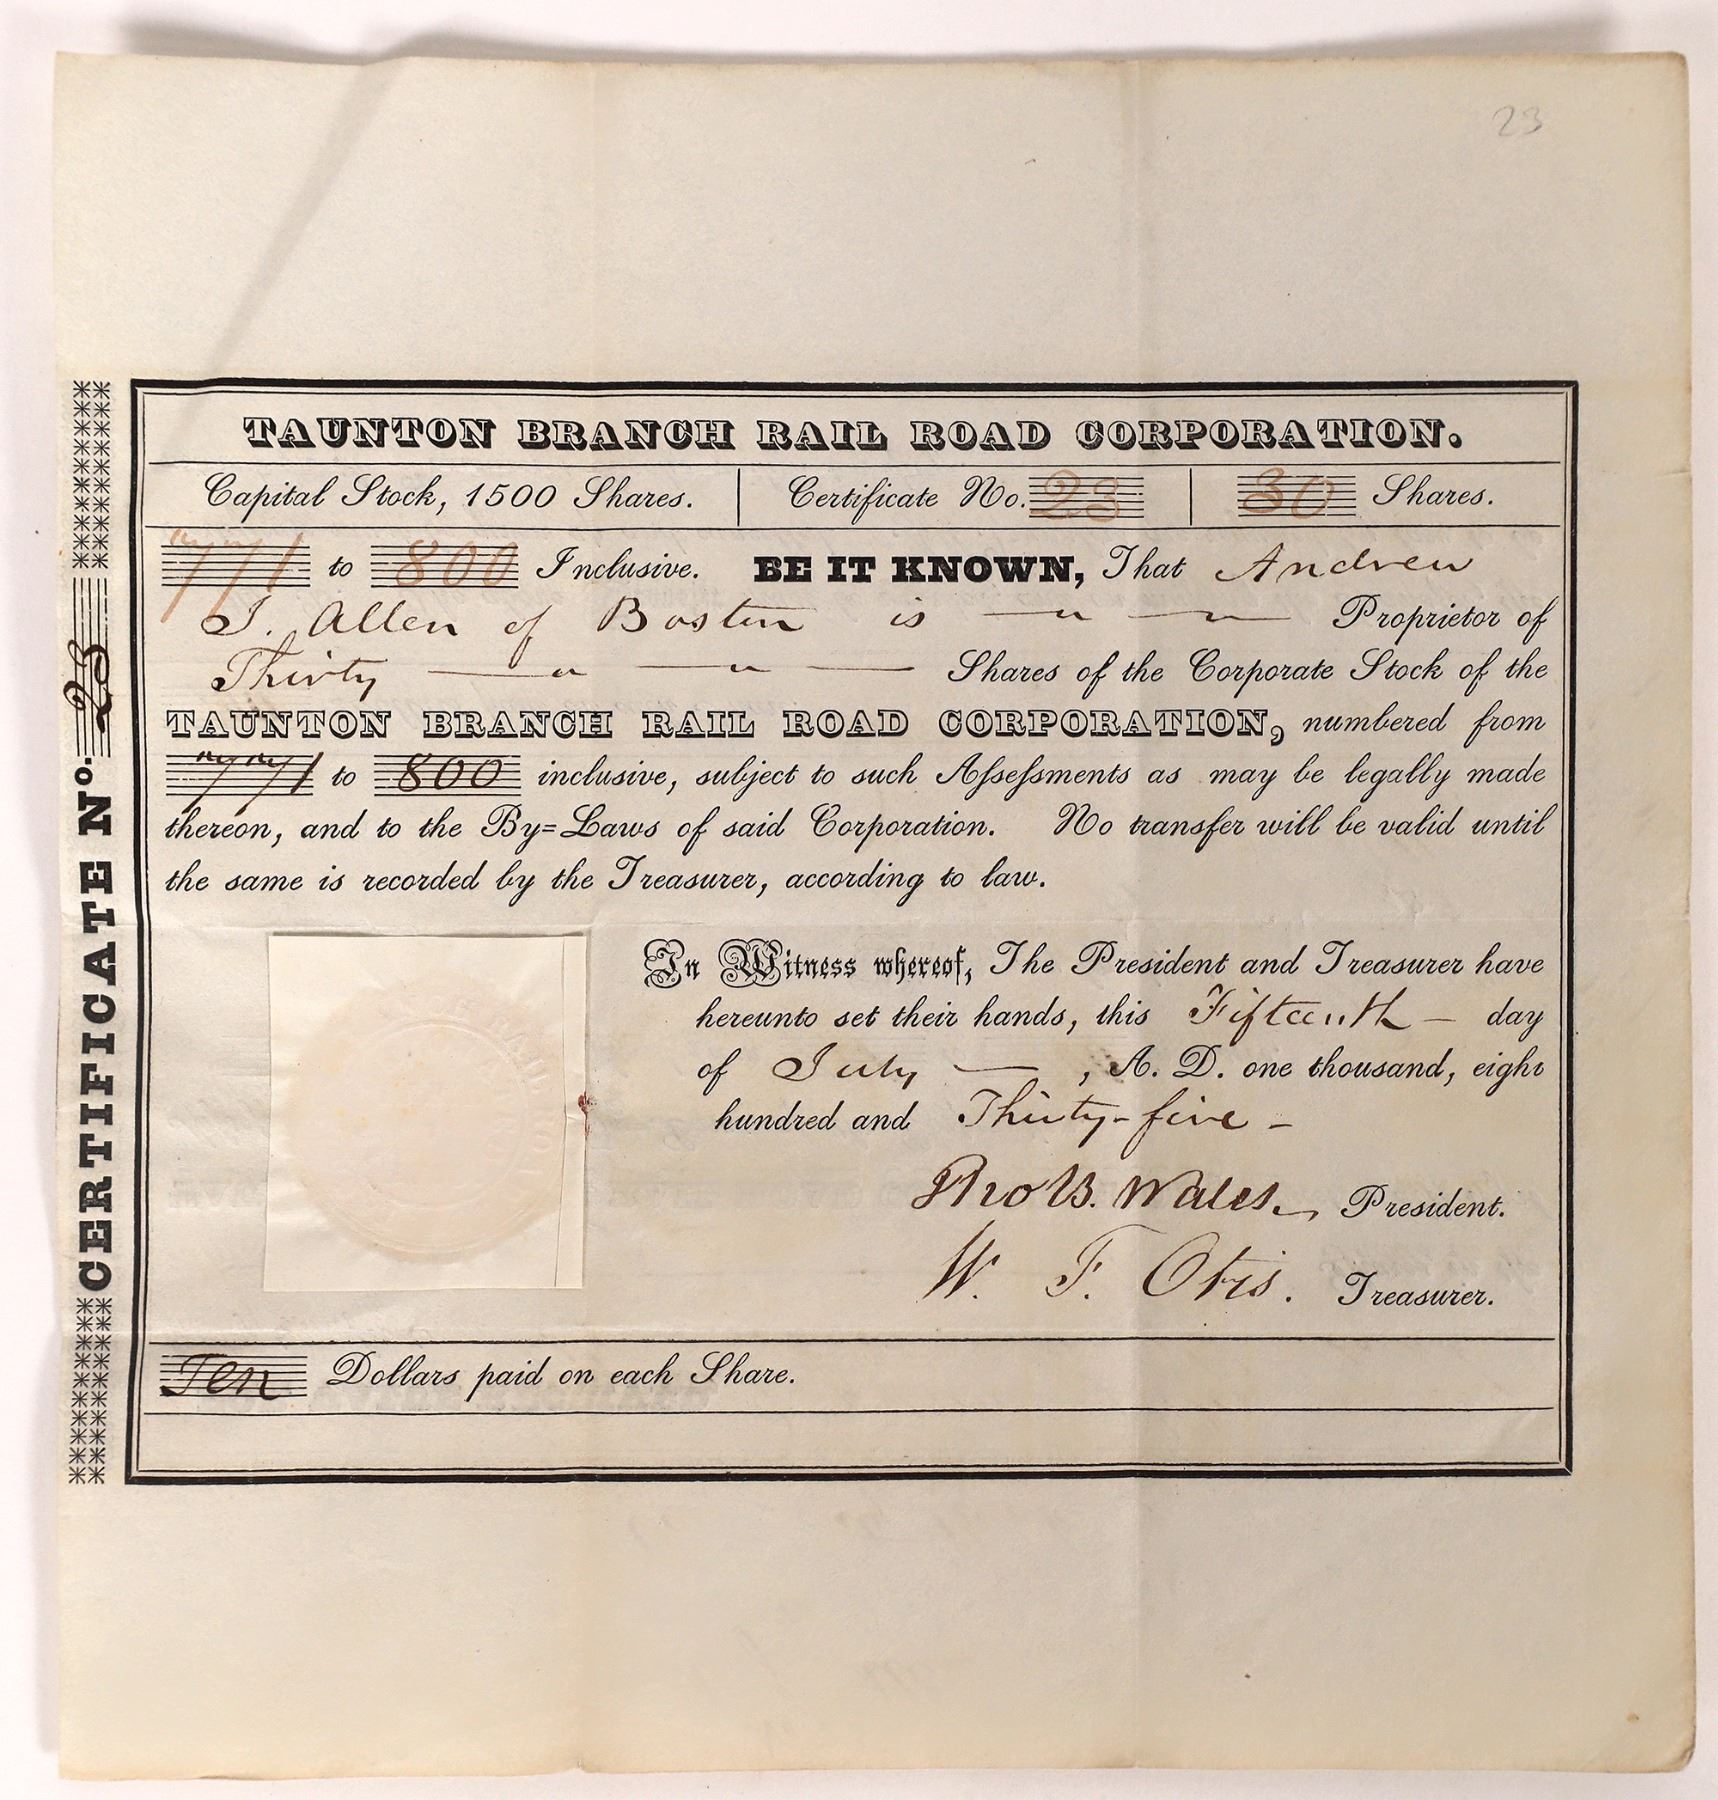 23
TAUNTON BRANCH RAIL ROAD CORPORATION.
Capital Stock, 1500 Shares. Certificate No. 23 30 Shares.
771 to 800 Inclusive. BE IT KNOWN, That Andrew
J. Allen of Boston is — " — " — Proprietor of
Thirty — " — " — Shares of the Corporate Stock of the
TAUNTON BRANCH RAIL ROAD CORPORATION, numbered from
771 to 800 inclusive, subject to such Aſseſsments as may be legally made
thereon, and to the By=Laws of said Corporation. No transfer will be valid until
the same is recorded by the Treasurer, according to law.
In Witness whereof, The President and Treasurer have
hereunto set their hands, this Fifteenth — day
of July — , A. D. one thousand, eight
hundred and Thirty-five —
Tho B. Wales, President.
W. F. Otis. Treasurer.
Ten Dollars paid on each Share.
CERTIFICATE No. 23